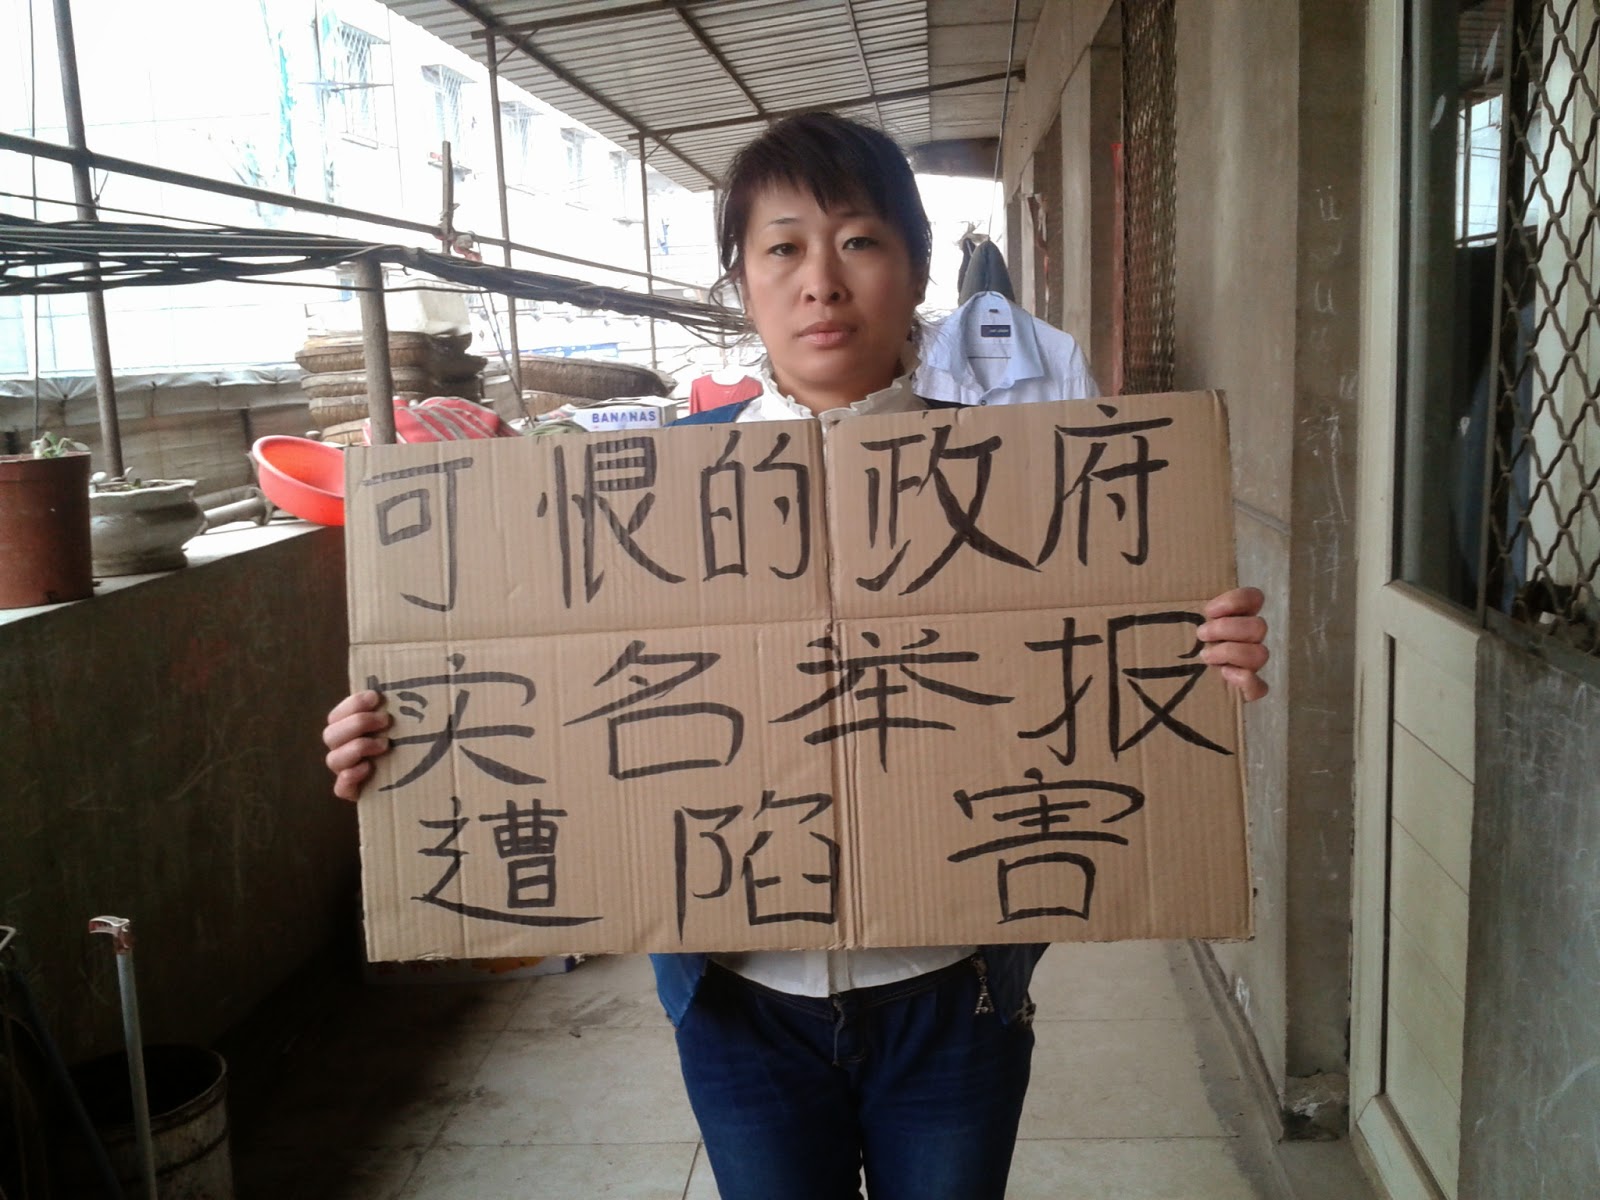 BANANAS
可恨的政府
实名举报
遭陷害